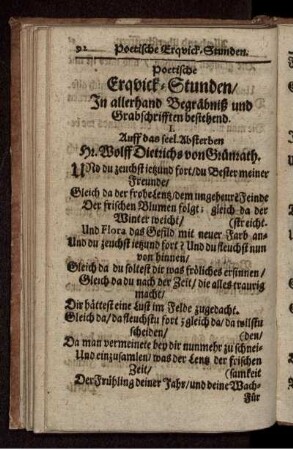 92 Poetische Erqvick-Stunden.
Poetische
Erqvick-Stunden/
In allerhand Begräbniß und
Grabschrifften bestehend.
I.
Auff das seel. Absterben
Hr. Wolff Dietrichs von Grünrath.
UNd du zeuchst ietzund fort/ du Bester meiner
Freunde/
Gleich da der frohe Lentz/ dem ungeheurē Feinde
Der frischen Blumen folgt; gleich da der
Winter weicht/ (streicht.
Und Flora das Gefild mit neuer Farb an-
Und du zeuchst ietzund fort? Und du fleuchst nun
von hinnen/
Gleich da du soltest dir was fröliches ersinnen/
Gleich da du nach der Zeit/ die alles traurig
macht/
Dir hättest eine Lust im Felde zugedacht.
Gleich da/ da fleuchstu fort; gleich da/ da wilstu
scheiden/ (den/
Da man vermeinete bey dir nunmehr zu schnei-
Und einzusamlen/ was der Lentz der frischen
Zeit/ (samkeit
Der Frühling deiner Jahr/ und deine Wach-
Für